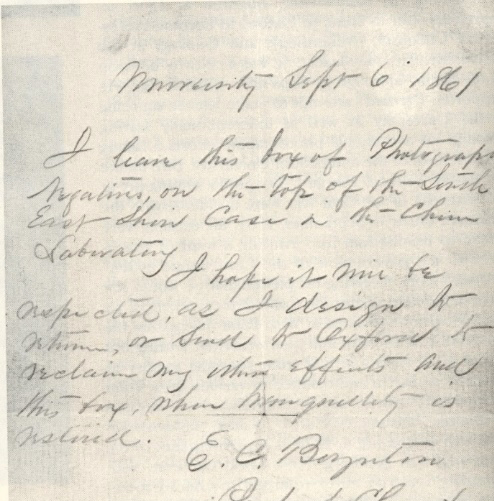 University Sept 6 1861
I leave this box of Photograph
Negatives, on the top of the South
East Show Case in the Chem
Laboratory
I hope it will be
respected, as I design to
return, or send to Oxford to
reclaim my other effects and
this box, when tranquillity is
restored.
E. C. Boynton